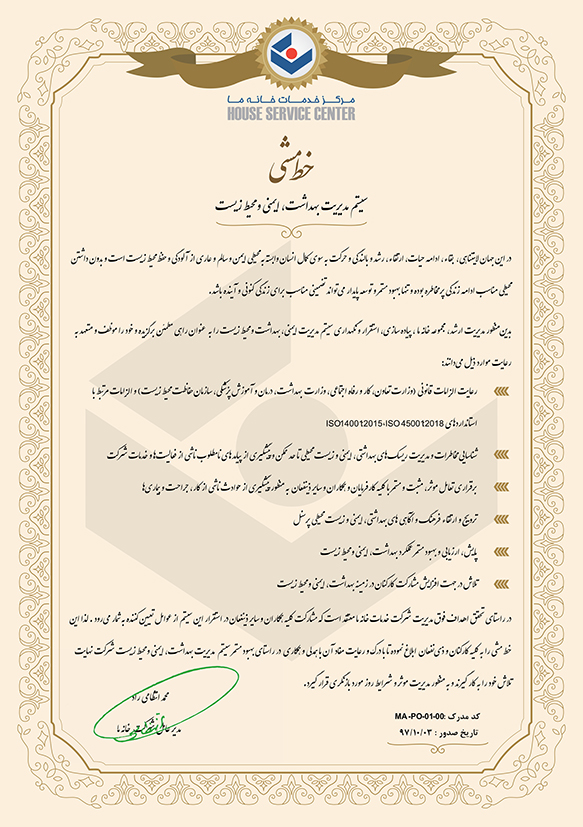 مرکز خدمات خانه ما
HOUSE SERVICE CENTER
خط مشی
سیستم مدیریت بهداشت، ایمنی و محیط زیست
در این جهان لایتناهی، بقاء، ادامه حیات، ارتقاء، رشد و بالندگی و حرکت به سوی کمال انسان وابسته به محیطی ایمن و سالم و عاری از آلودگی و حفظ محیط زیست است و بدون داشتن
محیطی مناسب ادامه زندگی پر مخاطره بوده و تنها بهبود مستمر و توسعه پایدار می‌تواند تضمینی مناسب برای زندگی کنونی و آینده باشد.
بدین منظور مدیریت ارشد، مجموعه خانه ما، پیاده سازی، استقرار و نگهداری سیستم مدیریت ایمنی، بهداشت و محیط زیست را به عنوان راهی مطمئن برگزیده و خود را موظف و متعهد به
رعایت موارد ذیل می‌داند:
رعایت الزامات قانونی (وزارت تعاون، کار و رفاه اجتماعی، وزارت بهداشت، درمان و آموزش پزشکی، سازمان حفاظت محیط زیست) و الزامات مرتبط با
استانداردهای ISO14001:2015-ISO 45001:2018
شناسایی مخاطرات و مدیریت ریسک‌های بهداشتی، ایمنی و زیست محیطی تا حد ممکن و پیشگیری از پیامدهای نامطلوب ناشی از فعالیت‌ها و خدمات شرکت
برقراری تعامل موثر، مثبت و مستمر با کلیه کارفرمایان و همکاران و سایر ذینفعان به منظور پیشگیری از حوادث ناشی از کار، جراحت و بیماری‌ها
ترویج و ارتقاء فرهنگ و آگاهی های بهداشتی، ایمنی و زیست محیطی پرسنل
پایش، ارزیابی و بهبود مستمر عملکرد بهداشت، ایمنی و محیط زیست
تلاش در جهت افزایش مشارکت کارکنان در زمینه بهداشت، ایمنی و محیط زیست
در راستای تحقق اهداف فوق مدیریت شرکت خدمات خانه ما معتقد است که مشارکت کلیه همکاران و سایر ذینفعان در استقرار این سیستم از عوامل تعیین کننده به شمار می‌رود. لذا این
خط مشی را به کلیه کارکنان و ذی نفعان ابلاغ نموده تا با درک و رعایت مفاد آن با همدلی و همکاری در راستای بهبود مستمر سیستم مدیریت بهداشت، ایمنی و محیط زیست شرکت نهایت
تلاش خود را به کار گیرند و به منظور مدیریت موثر و شرایط روز مورد بازنگری قرار گیرد.
محمد انتظامی راد
مدیر عامل شرکت خانه ما
کد مدرک :MA-PO-01-00
تاریخ صدور : ۹۷/۱۰/۰۳